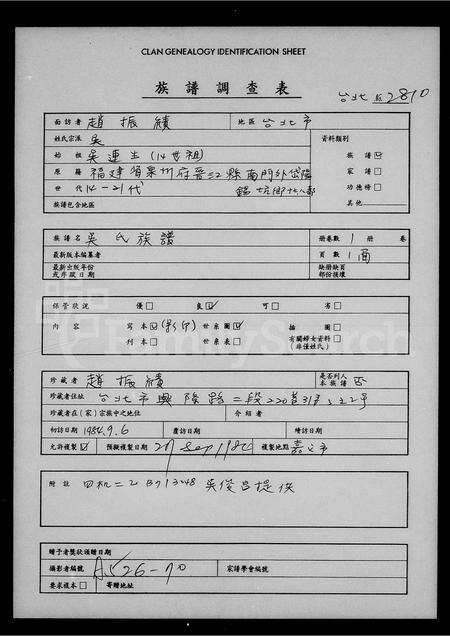 CLAN GENEALOGY IDENTIFICATION SHEET
族譜調查表
台北 2810
面訪者 趙振績 地區 台北市
姓氏宗派 吳 資料類別
始祖 吳連生(14世祖) 族譜☑
原籍 福建省泉州府晋江縣南門外 家譜□
世代 14-21代 功德榜□
族譜包含地區 其他
族譜名 吳氏族譜 册卷數 1 册 卷
最新版本編纂者 頁數 1面
最新出版年份或序跋日期 缺册缺頁部份損壞
保管狀況 優□ 良☑ 可□ 劣□
內容 寫本☑(影印) 世系圖☑ 插圖□
刊本□ 世系表□ 有關婦女資料(非僅姓氏)□
珍藏者 趙振績 是否列入本族譜 否
珍藏者住址 台北市興隆路二段220巷
珍藏者在(家)宗族中之地位 介紹者
初訪日期 1984.9.6 覆訪日期 續訪日期
允許複製☑ 預擬複製日期 複製地點 嘉義市
附註 吳俊昌提供
贈予者獎狀頒贈日期
攝影者編號 家譜學會編號
要求複本□ 寄贈地址
FamilySearch